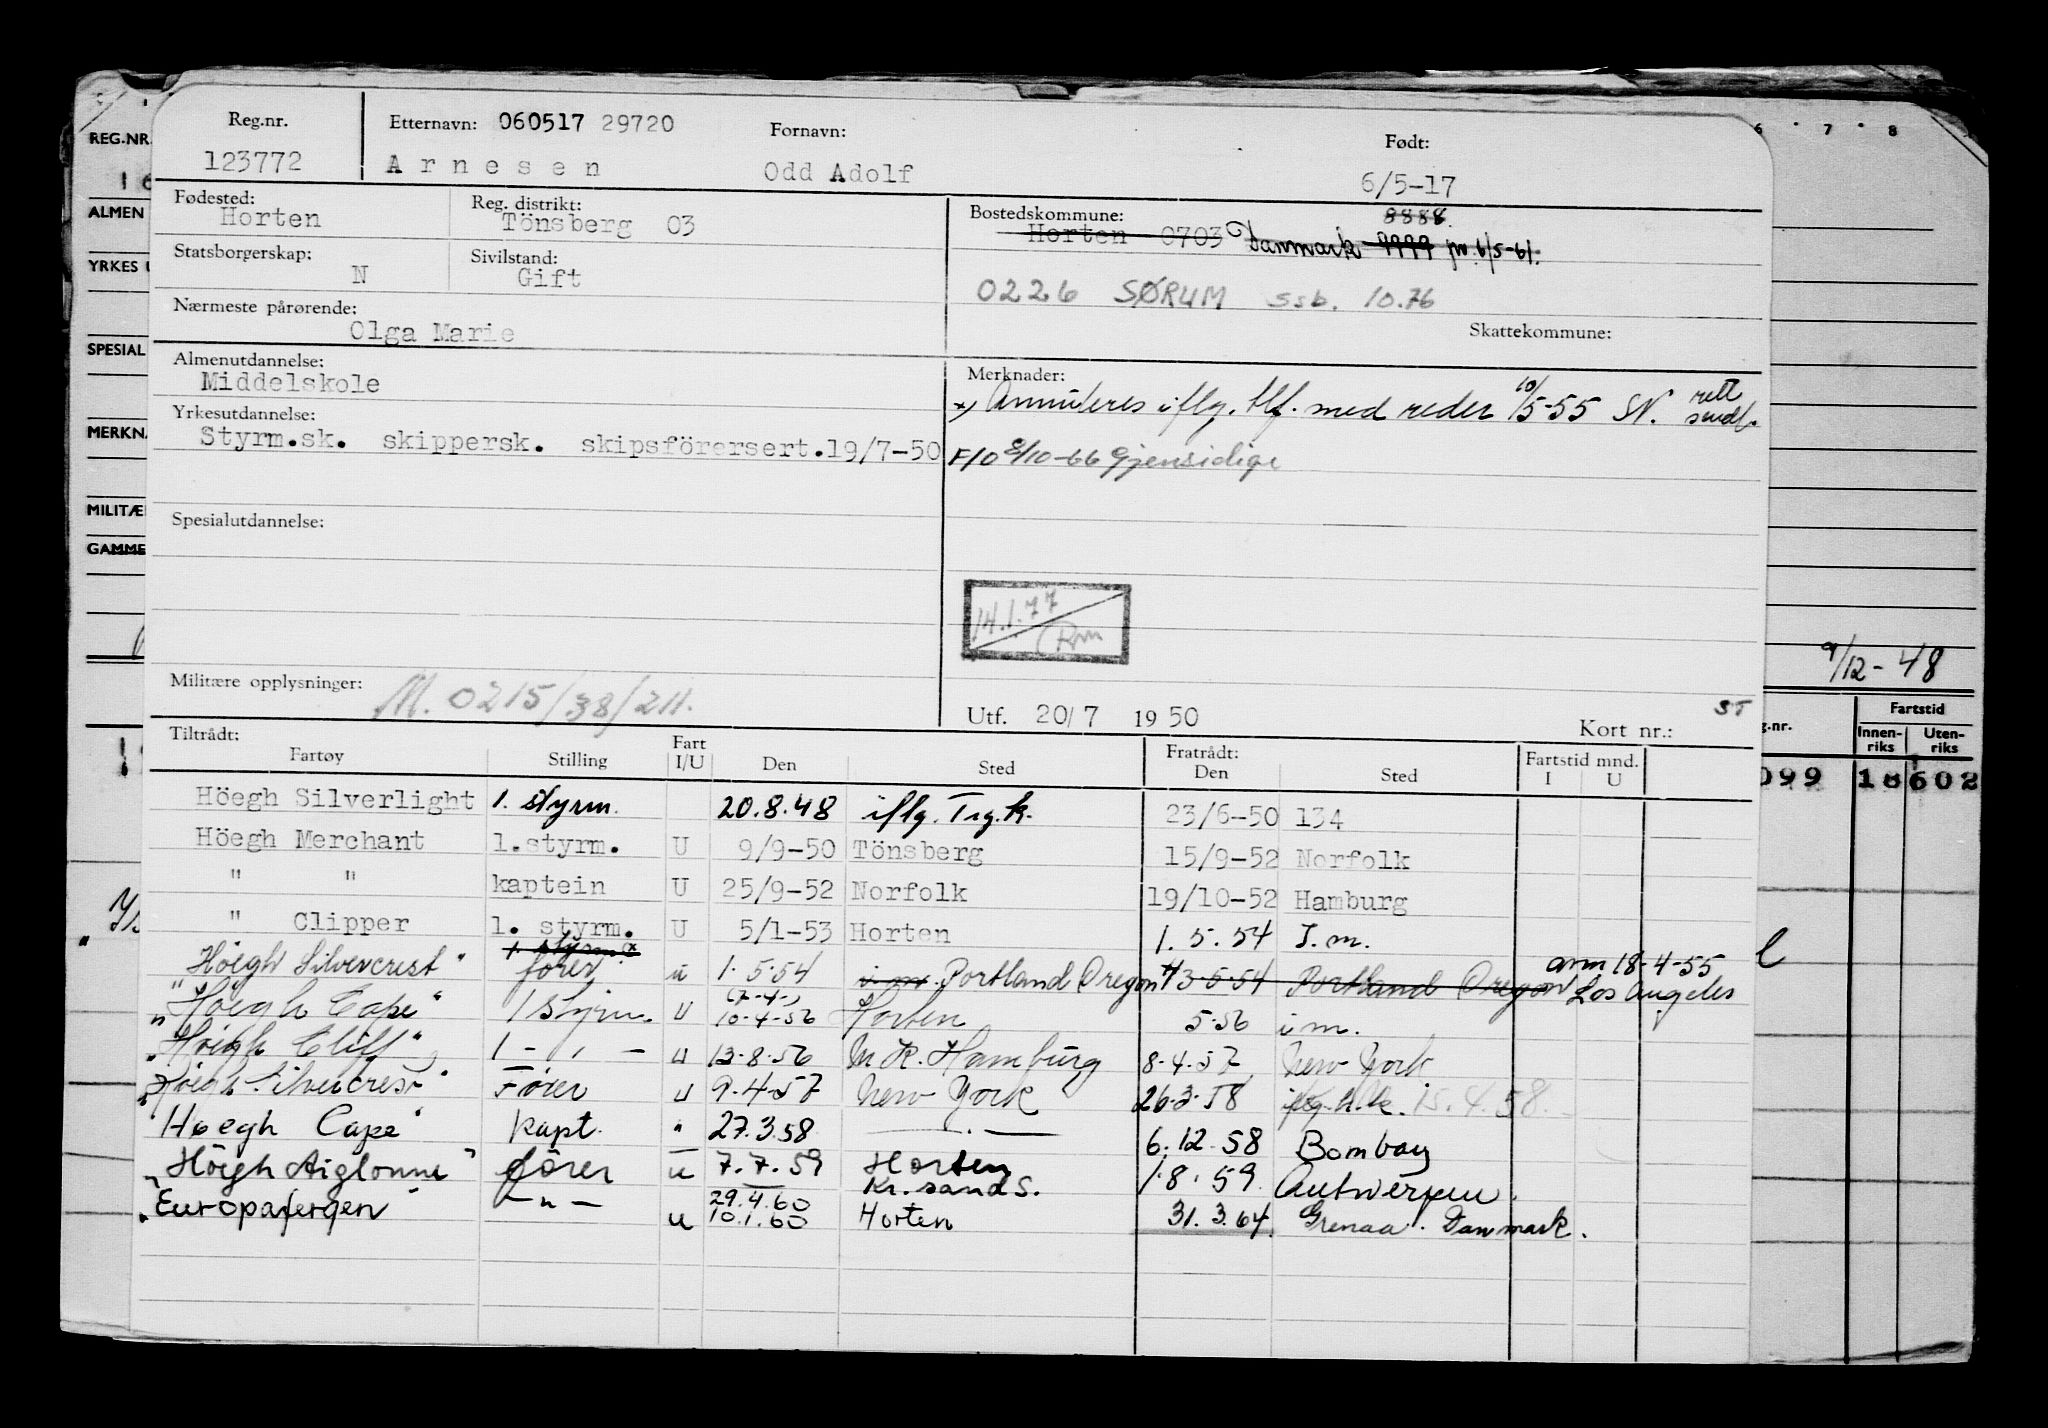 Reg.nr. Etternavn: 060517 29720 Fornavn: Født:
123772 Arnesen Odd Adolf 6/5-17
Fødested: Reg. distrikt: Bostedskommune: 8888
Horten Tönsberg 03 Horten 0703 Danmark 9999 pr. 6/5-61.
Statsborgerskap: Sivilstand:
N Gift 0226 SØRUM ssb. 10.76
Nærmeste pårørende: Skattekommune:
Olga Marie
Almenutdannelse: Merknader:
Middelskole x) Annuleres iflg. tlf. med reder 10/5-55 SN. rett sendt.
Yrkesutdannelse:
Styrm.sk. skippersk. skipsförersert.19/7-50 F10 8/10-66 Gjensidige
Spesialutdannelse:
14.1.77
Rm
Militære opplysninger: M. 0215/38/211.
Utf. 20/7 1950 Kort nr.: ST
Tiltrådt: Fratrådt:
Fartøy Stilling Fart I/U Den Sted Den Sted Fartstid mnd. I U
Höegh Silverlight 1. styrm. 20.8.48 iflg. Trg.k. 23/6-50 134
Höegh Merchant 1.styrm. U 9/9-50 Tönsberg 15/9-52 Norfolk
" " kaptein U 25/9-52 Norfolk 19/10-52 Hamburg
" Clipper 1. styrm. U 5/1-53 Horten 1.5.54 I.m.
1. styrm. x ann 18-4-55
Höegh Silvercrest" fører u 1.5.54 i m. Portland Oregon 13-5-54 Portland Oregon Los Angeles
"Höegh Cape" 1 styrm. u 10-4-56 Horten 5.56 i m.
"Höegh Cliff" 1 - " - u 13-8-56 M K. Hamburg 8-4-57 New York
"Höegh Silvercrest" Fører u 9-4-57 New York 26.3.58 iflg. h.k. 15.4.58.
"Høegh Cape" kapt. " 27.3.58 — " — 6.12.58 Bombay
"Höegh Aiglonne" fører u 7.7.59 Horten 1.8.59 Antwerpen.
29.4.60 Kr.sand S.
"Europafergen" — " — u 10.1.60 Horten 31.3.64. Grenaa. Danmark.
REG.NR.
ALMEN
YRKES
SPESIAL
MERKNA
MILITÆ
GAMME
6 7 8
9/12-48
g.nr. Fartstid
Innenriks Utenriks
099 18 602